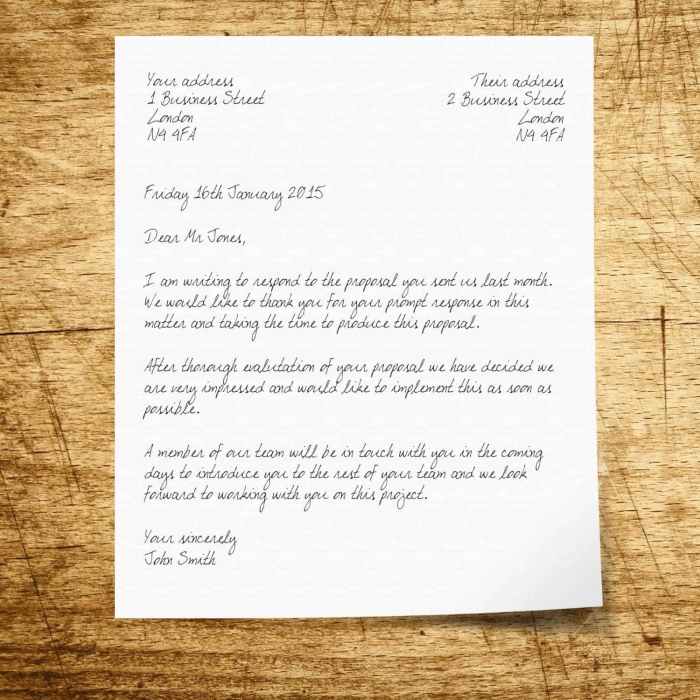 Your address
1 Business Street
London
N9 9FA
Their address
2 Business Street
London
N9 9FA
Friday 16th January 2015
Dear Mr Jones,
I am writing to respond to the proposal you sent us last month.
We would like to thank you for your prompt response in this
matter and taking the time to produce this proposal.
After thorough evalutation of your proposal we have decided we
are very impressed and would like to implement this as soon as
possible.
A member of our team will be in touch with you in the coming
days to introduce you to the rest of your team and we look
forward to working with you on this project.
Your sincerely
John Smith